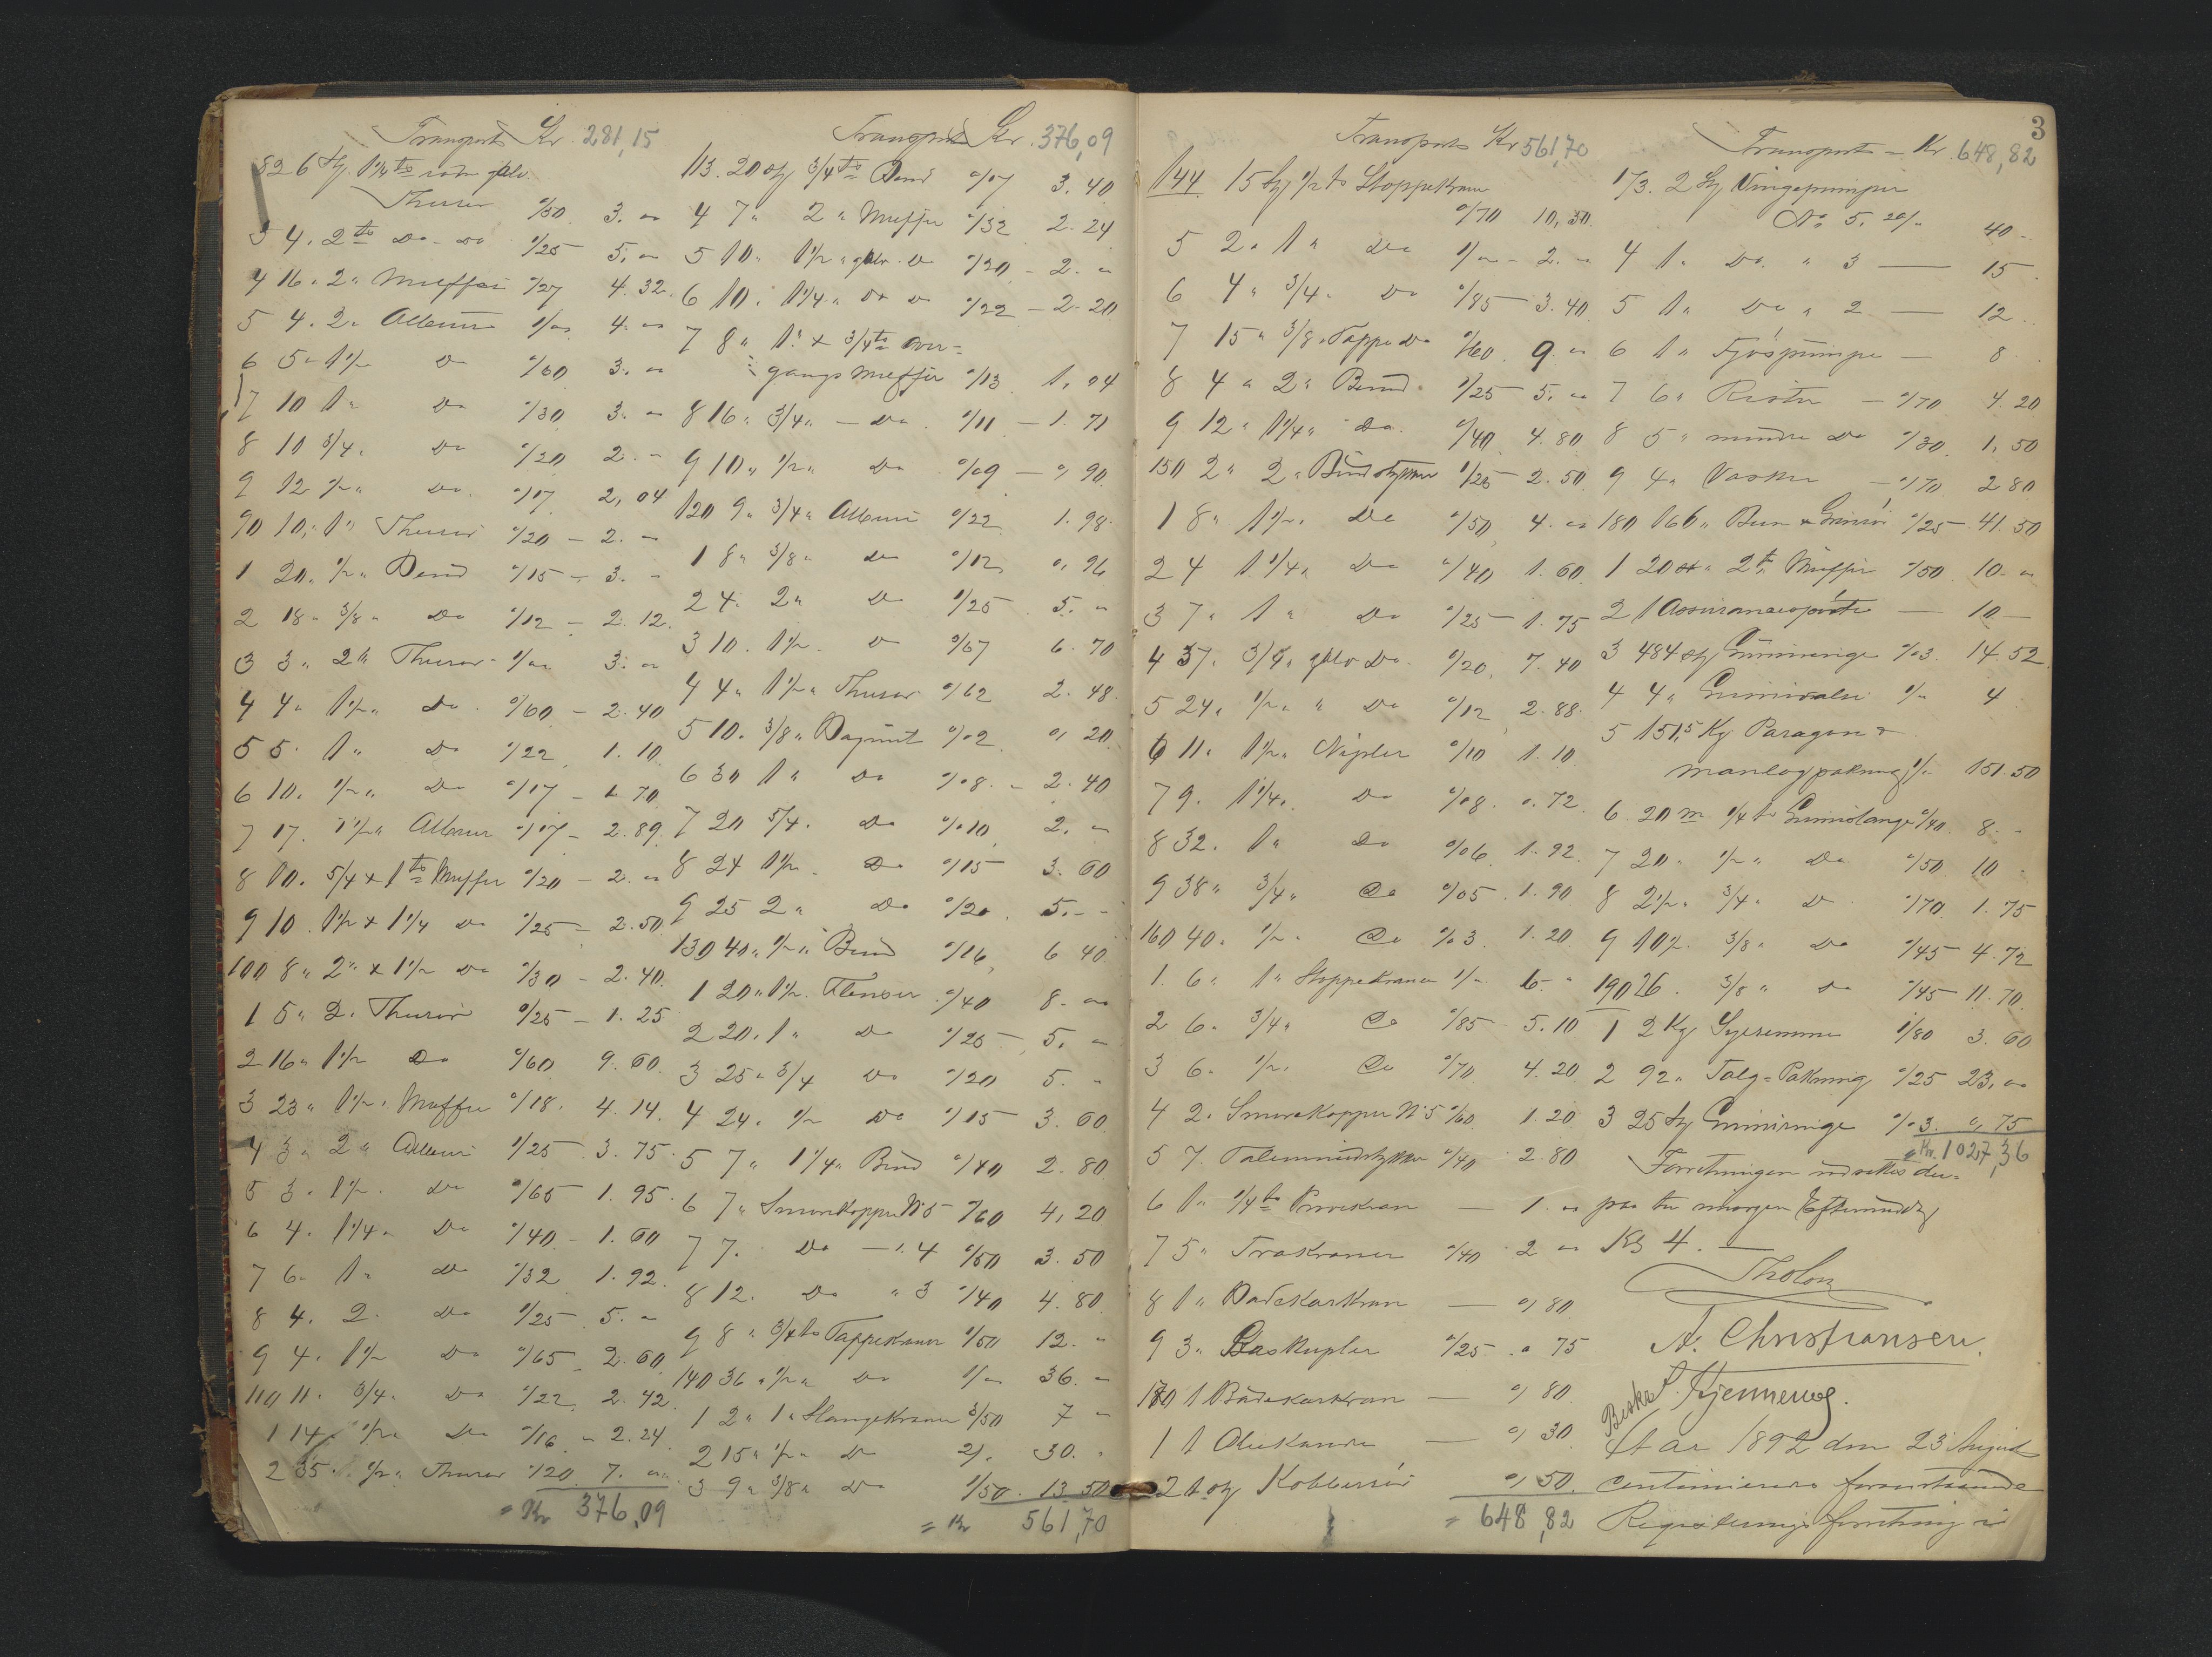 Transport Kr. 281,15
82 6 Stk 1 1/4 to galv.
Thusrør %30 3. "
3 4. 2 to Do. Do 1/25 5. "
4 16. 2 " Muffer %27 4.32.
5 4. 2 " Albuer 1/" 4. "
6 5 " 1 1/2 Do %60 3. "
7 10 1 " Do %30 3. "
8 10 3/4 " Do %20 2. "
9 12 1/2 " Do. %17 2,04
90 10. 1 " Thusrør %20 - 2. "
1 20. 1/2 " Bend %15 - 3. "
2 18 " 3/8 " Do %12 - 2.12.
3 3 " 2 " Thusrør 1/" 3. "
4 4 " 1 1/2 " Do. %60 - 2.40
5 5. 1 " Do %22 1.10
6 10. 1/2 " Do %17 - 1.70
7 17. 1/2 " Albuer %17 - 2.89
8 10. 5/4 x 1 to Muffer %20 - 2. "
9 10. 1 1/2 x 1 1/4 Do %25 - 2.50
100 8 " 2 " x 1 1/2 Do %30 - 2.40.
1 5 " 2. Thusrør %25 - 1.25
2 16 " 1 1/2 Do %60 9.60.
3 23 " 1 1/2 " Muffer %18. 4.14.
4 3 " 2 " Albuer 1/25 3.75.
5 3. 1 1/2. Do %65 1.95.
6 4. 1 1/4 " Do %40 - 1.60
7 6 " 1 " Do %32 1.92.
8 4. 2. Do 1/25 5. "
9 4. 1 1/2 Do %65 2.60
110 11. 3/4 " Do %22 2.42.
1 14 " 1/2 " Do %16 - 2.24.
2 35. 1/2 " Thusrør %20 7. "
= Kr 376,09
Transport Kr. 376,09
113. 20 Stk 3/4 to Bend %17 3.40
4 7 " 2 " Muffer %32 2.24
5 10 " 1 1/2 " galv. Do %20 - 2. "
6 10. 1 1/4 " Do Do %22 - 2.20
7 8 " 1 " x 3/4 to Over=
gangs Muffer %13 1.04
8 16 " 3/4 " - Do. %11 - 1.71
9 10 " 1/2 " Do %09 - 0,90
120 9 " 3/4 " Albuer %22 1.98.
1 8 " 3/8 " Do %12 0,96
2 4. 2 " Do 1/25 5. "
3 10. 1 1/2. Do %67 6.70
4 4 " 1 1/2 " Thusrør %62 2.48.
5 10. 3/8 " Do %02 0,20
6 30 1 " Do %08. - 2.40
7 20 5/4. Do %10 2. "
8 24 1 1/2. Do %15 3.60
9 25 2 " Do %20 5. -
130 40 " 1/2 " Bend %16, 6.40
1 20 " 1 1/2. Flenser %40 8. "
2 20. 1 " Do %25 5. "
3 25 " 3/4 Do %20 5. "
4 24. 1/2 Do %15 3.60
5 7 " 1 1/4 " Bend %40 2.80
6 7 " Smørekopper N. 5 %60 4,20
7 7. Do - " 4 %50 3.50
8 12. Do " 3 %40 4.80
9 8 " 3/4 to Tappekraner 1/50 12. "
140 36 " 1/2 " Do 1/" 36. "
1 2 " 1 " Slangekraner 3/50 7 "
2 15 " 1/2 " Do 2/. 30. "
3 9 " 3/8 " Do 1/50. 13.50
= Kr 561,70
Transport Kr 561,70
144 15 Stk 1/2 to Stoppekraner
%70 10,50
5 2. 1 " Do 1/" - 2. "
6 4 " 3/4 " Do %85 3.40
7 15 " 3/8 " Tappe Do %60. 9 "
8 4 " 2 " Bend. 1/25 5. "
9 12 " 1 1/4 " Do. %40 4.80
150 2 " 2 " Bundstykker 1/25 2.50
1 8 " 1 1/2. Do %50 4. "
2 4 1 1/4 " Do %40 1.60
3 7 " 1 " Do %25 1.75
4 37. 3/4 " galv Do. %20. 7.40
5 24 " 1/2 " " Do %12 2.88.
6 11. 1 1/2 " Nipler %10 1.10
7 9. 1 1/4 " Do %08. 0.72
8 32. 1 " Do %06. 1.92.
9 38 " 3/4 " Do %05. 1.90
160 40. 1/2 " Do %03. 1.20
1. 6 " 1 " Stoppekraner 1/" 6. "
2 6 " 3/4 " Do %85 5.10
3 6. 1/2. Do %70 4.20
4 2. Smørekopper N. 5 %60. 1.20
5 7. %40 2.80
6 1 " 1/4 to Prøvekran - 1. "
7 5 " Trækraner %40 2 "
8 1 " Badekarkran - 0,80
9 3. Gaskupler %25 " 75
170 1 Badekarkran - 0,80
1 1 Oliekande - 0,30
2 1 Stk Kobberrør 0,50
= 648,82
3
Transport - Kr. 648,82
173. 2 Stk Vingepumper
No. 5. 20/. 40 -
4 1. Do. " 3 — 15.
5 1 " Do " 2 — 12
6 1 " Fjøspumpe — 8
7 6 " Rister - %70 4.20
8 5 " mindre Do %30. 1,50
9 4 " Vasker - %70 2 80
180 166 " %25 41.50
1 20 Stk 2 t Muffer %50 10 - "
2 1 Assurancesprøite — 10 -
3 484 Stk Gummiringe %03. 14.52
4 4 " 1/" 4
5 151,5 Kg Paragon &
manlogpakning 1/" 151.50
6. 20 m 1/4 to Gummislange %40. 8. -
7 20 " 1/2 " Do %50 10 -
8 2 1/2 " 3/4 " Do %70 1.75
9 10 1/2. 3/8 " Do %45 4.72
190 26. 3/8 " Do %45 11.70
1 2 Kg Syeremme 1/80 3.60
2 92 " Talg=Pakning %25 23. "
3 25 Stk Gummiringe %03. 0,75
= Kr. 1027,36
Forretningen udsattes der=
paa til morgen Eftermiddag
Kl 4. —
Tholn
A. Christiansen.
Besk. L. Kjennerud.
At Aar 1892 den 23 August
continueredes foranstaaende
Registreringsforretning i